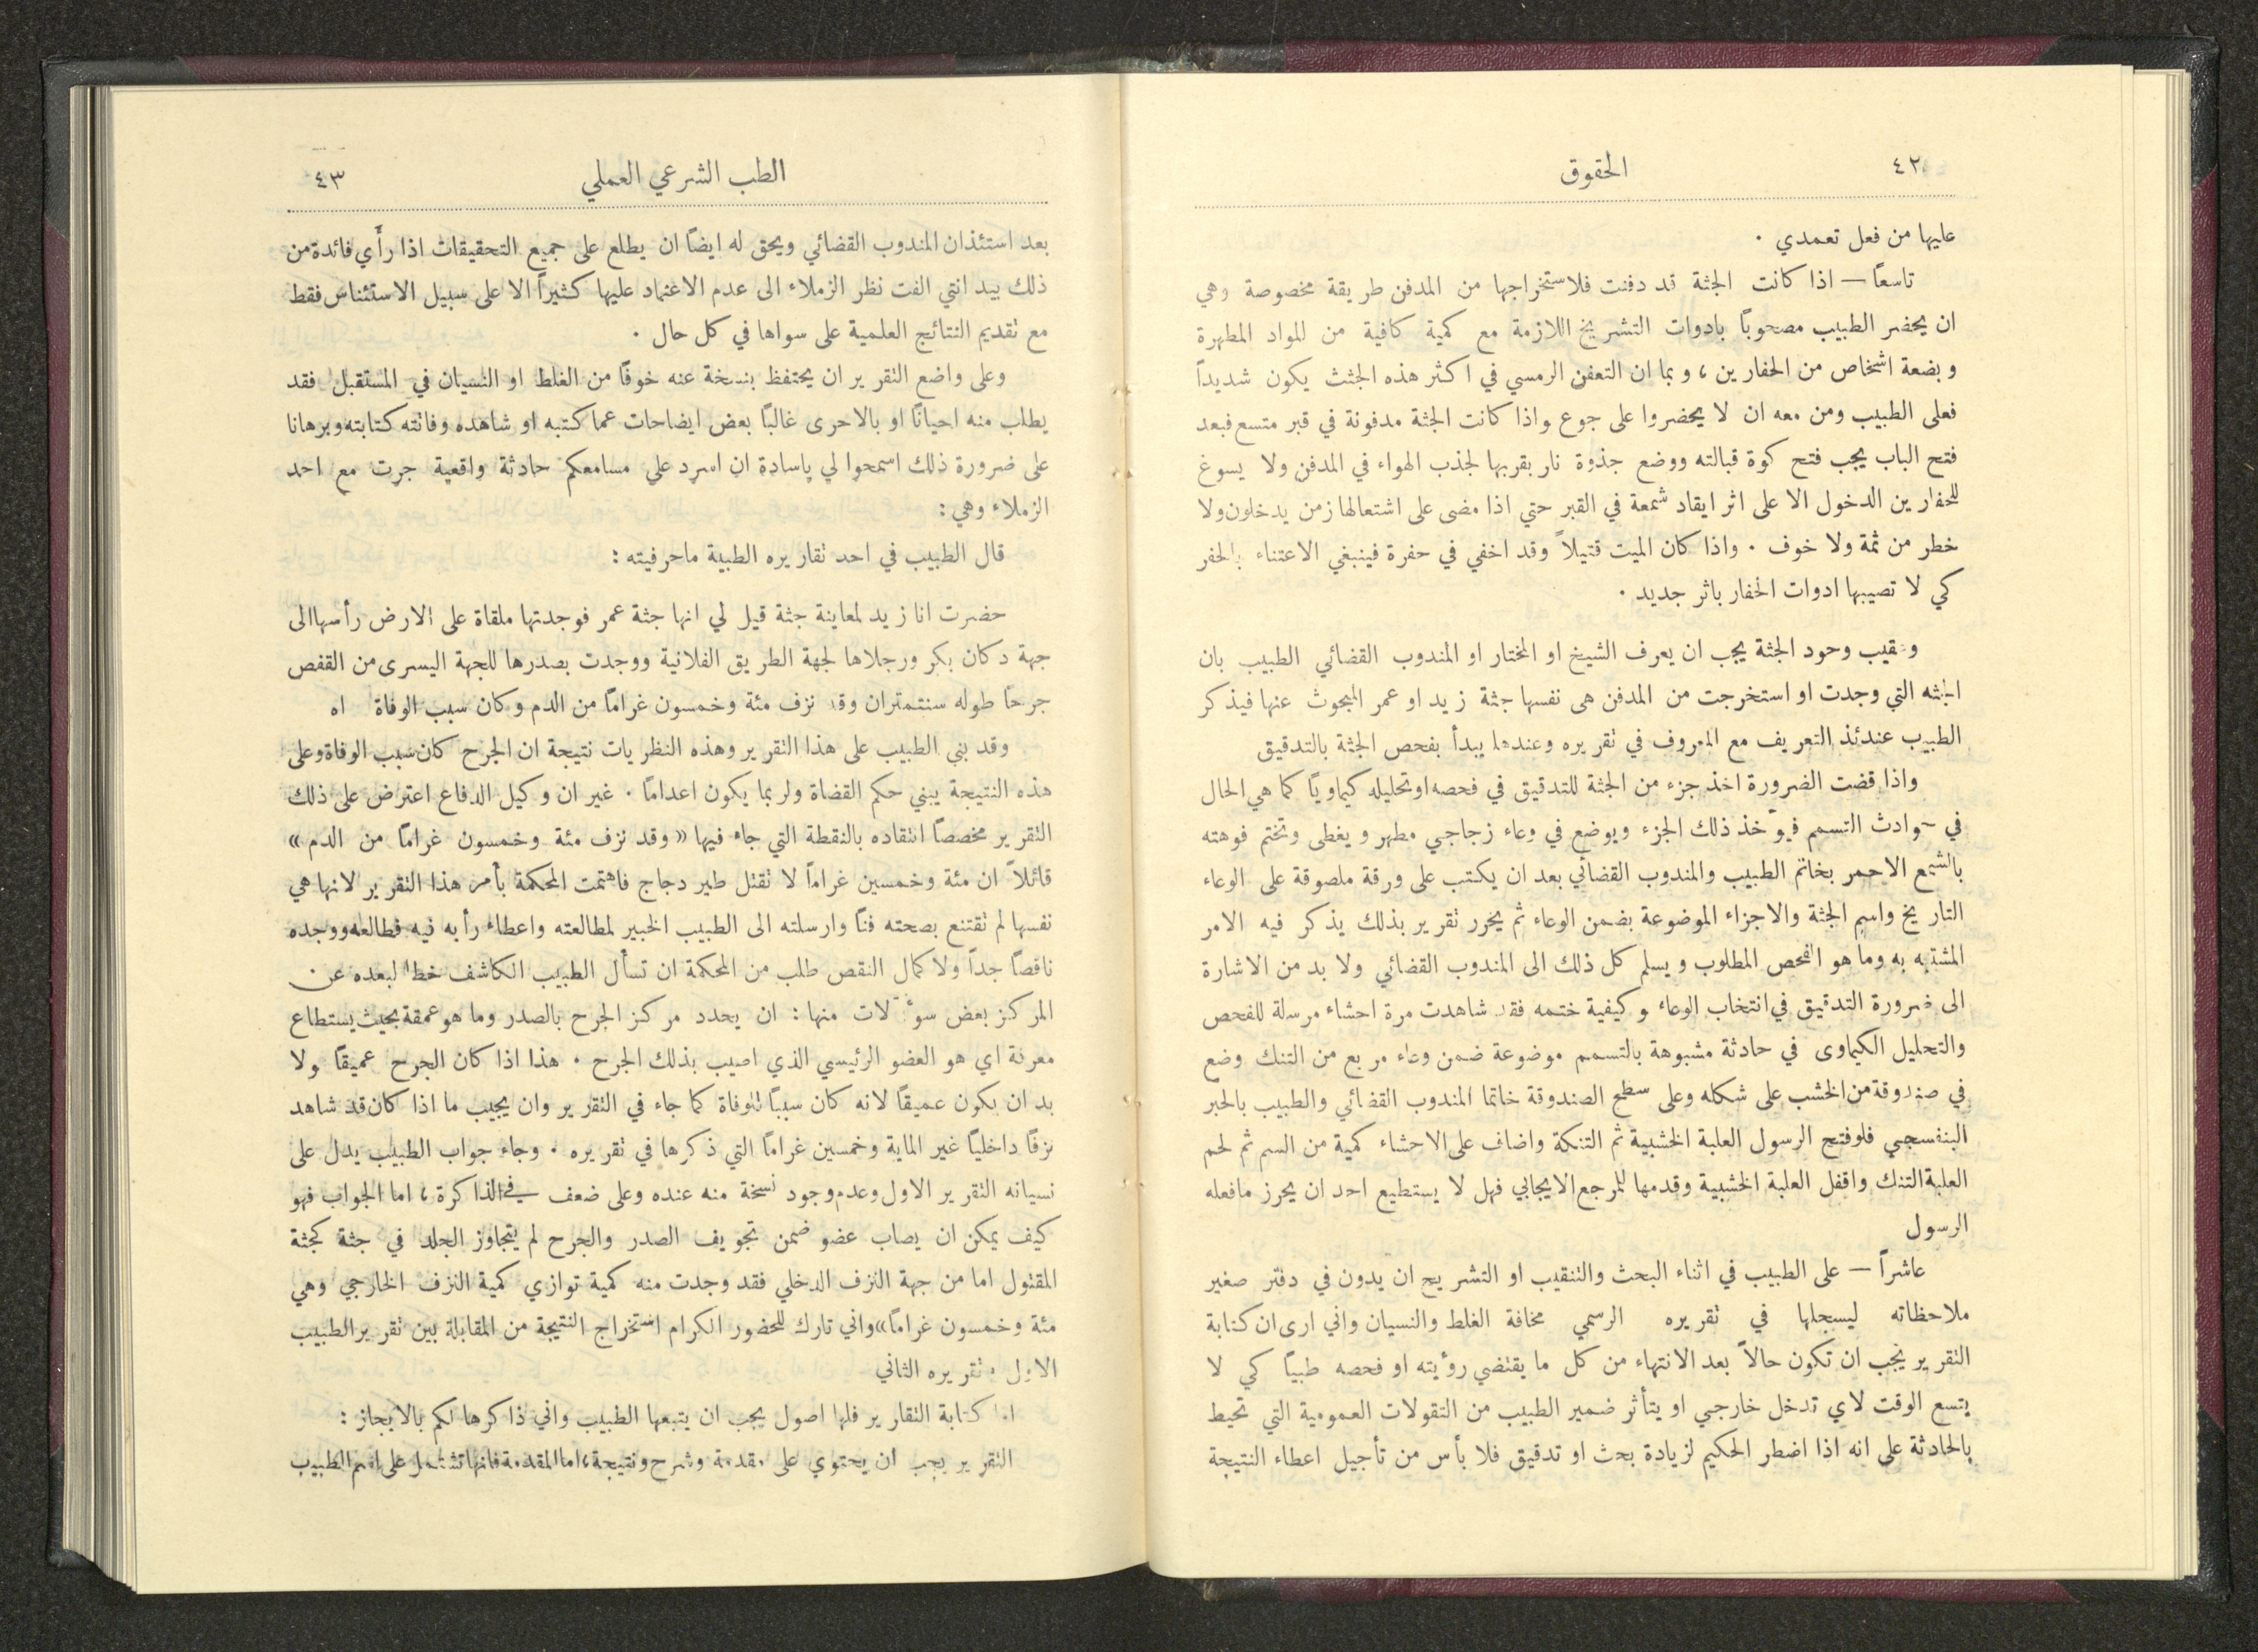 ٤٢
الحقوق
عليها من فعل تعمدي .
تاسعاً — اذا كانت الجثة قد دفنت فلاستخراجها من المدفن طريقة مخصوصة وهي
ان يحضر الطبيب مصحوباً بادوات التشريح اللازمة مع كمية كافية من المواد المطهرة
وبضعة اشخاص من الحفارين ، وبما ان التعفن الرمسي في اكثر هذه الجثث يكون شديداً
فعلى الطبيب ومن معه ان لا يحضروا على جوع واذا كانت الجثة مدفونة في قبر متسع فبعد
فتح الباب يجب فتح كوة قبالته ووضع جذوة نار بقربها لجذب الهواء في المدفن ولا يسوغ
للحفارين الدخول الا على اثر ايقاد شمعة في القبر حتي اذا مضى على اشتعالها زمن يدخلون ولا
خطر من ثمة ولا خوف . واذا كان الميت قتيلاً وقد اخفي في حفرة فينبغي الاعتناء بالحفر
كي لا تصيبها ادوات الحفار باثر جديد .
وعقيب وحود الجثة يجب ان يعرف الشيخ او المختار او المندوب القضائي الطبيب بان
الجثه التي وجدت او استخرجت من المدفن هى نفسها جثة زيد او عمر المبحوث عنها فيذكر
الطبيب عندئذ التعريف مع المعروف في تقريره وعندها يبدأ بفحص الجثة بالتدقيق
واذا قضت الضرورة اخذ جزء من الجثة للتدقيق في فحصه او تحليله كيماوياً كما هي الحال
في حوادث التسمم فيؤخذ ذلك الجزء ويوضع في وعاء زجاجي مطهر ويغطى وتختم فوهته
بالشمع الاحمر بخاتم الطبيب والمندوب القضائي بعد ان يكتب على ورقة ملصوقة على الوعاء
التاريخ واسم الجثة والاجزاء الموضوعة بضمن الوعاء ثم يحرر تقرير بذلك يذكر فيه الامر
المشتبه به وما هو الفحص المطلوب ويسلم كل ذلك الى المندوب القضائي ولا بد من الاشارة
الى ضرورة التدقيق في انتخاب الوعاء وكيفية ختمه فقد شاهدت مرة احشاء مرسلة للفحص
والتحليل الكيماوى في حادثة مشبوهة بالتسمم موضوعة ضمن وعاء مربع من التنك وضع
في صندوقة من الخشب على شكله وعلى سطح الصندوقة خاتما المندوب القضائي والطبيب بالحبر
البنفسجي فلو فتح الرسول العلبة الخشبية ثم التنكة واضاف على الاحشاء كمية من السم ثم لحم
العلبة التنك واقفل العلبة الخشبية وقدمها للمرجع الايجابي فهل لا يستطيع احد ان يحرز مافعله
الرسول
عاشراً — على الطبيب في اثناء البحث والتنقيب او التشريح ان يدون في دفتر صغير
ملاحظاته ليسجلها في تقريره الرسمي مخافة الغلط والنسيان واني ارى ان كتابة
التقرير يجب ان تكون حالاً بعد الانتهاء من كل ما يقتضي رؤيته او فحصه طبياً كي لا
يتسع الوقت لاي تدخل خارجي او يتأثر ضمير الطبيب من التقولات العمومية التي تحيط
بالحادثة على انه اذا اضطر الحكيم لزيادة بحث او تدقيق فلا بأس من تأجيل اعطاء النتيجة
الطب الشرعي العملي
٤٣
بعد استئذان المندوب القضائي ويحق له ايضاً ان يطلع على جميع التحقيقات اذا رأَي فائدة من
ذلك بيد انتي الفت نظر الزملاء الى عدم الاعتماد عليها كثيراً الا على سبيل الاستئناس فقط
مع تقديم النتائج العلمية على سواها في كل حال .
وعلى واضع التقرير ان يحتفظ بنسخة عنه خوفاً من الغلط او النسيان في المستقبل فقد
يطلب منه احياناً او بالاحرى غالباً بعض ايضاحات عما كتبه او شاهده وفاتته كتابته وبرهانا
على ضرورة ذلك اسمحوا لي ياسادة ان اسرد على مسامعكم حادثة واقعية جرت مع احد
الزملاء وهي :
قال الطبيب في احد تقاريره الطبية ماحرفيته :
حضرت انا زيد لمعاينة جثة قيل لي انها جثة عمر فوجدتها ملقاة على الارض رأسها الى
جهة دكان بكر ورجلاها لجهة الطريق الفلانية ووجدت بصدرها للجهة اليسرى من القفص
جرحاً طوله سنتمتران وقد نزف مئة وخمسون غراماً من الدم وكان سبب الوفاة اه
وقد بني الطبيب على هذا التقرير وهذه النظريات نتيجة ان الجرح كان سبب الوفاة وعلى
هذه النتيجة يبني حكم القضاة ولربما يكون اعداماً . غير ان وكيل الدفاع اعترض على ذلك
التقرير مخصصاً انتقاده بالنقطة التي جاء فيها « وقد نزف مئة وخمسون غراماً من الدم »
قائلاً ان مئة وخمسين غراماً لا تقتل طير دجاج فاهتمت المحكمة بأمر هذا التقرير لانها هي
نفسها لم تقتنع بصحته فناً وارسلته الى الطبيب الخبير لمطالعته واعطاء رأيه فيه فطالعه ووجده
ناقصاً جداً ولاكمال النقص طلب من المحكمة ان تسأل الطبيب الكاشف خطا لبعده عن
المركز بعض سؤالات منها : ان يحدد مركز الجرح بالصدر وما هو عمقة بحيث يستطاع
معرفة اي هو العضو الرئيسي الذي اصيب بذلك الجرح . هذا اذا كان الجرح عميقاً ولا
بد ان يكون عميقاً لانه كان سبباً للوفاة كما جاء في التقرير وان يجيب ما اذا كان قد شاهد
نزفاً داخلياً غير الماية وخمسين غراماً التي ذكرها في تقريره . وجاء جواب الطبيب يدل على
نسيانه التقرير الاول وعدم وجود نسخة منه عنده وعلى ضعف في الذاكرة ، اما الجواب فهو
كيف يمكن ان يصاب عضو ضمن تجويف الصدر والجرح لم يتجاوز الجلد في جثة كجثة
المقتول اما من جهة النزف الدخلي فقد وجدت منه كمية توازي كمية النزف الخارجي وهي
مئة وخمسون غراماً» واني تارك للحضور الكرام استخراج النتيجة من المقابلة بين تقرير الطبيب
الاول وتقريره الثاني
اما كتابة التقارير فلها اصول يجب ان يتبعها الطبيب واني ذاكرها لكم بالايجاز :
التقرير يجب ان يحتوي على مقدمة وشرح ونتيجة ، اما المقدمة فانها تشتمل على اسم الطبيب